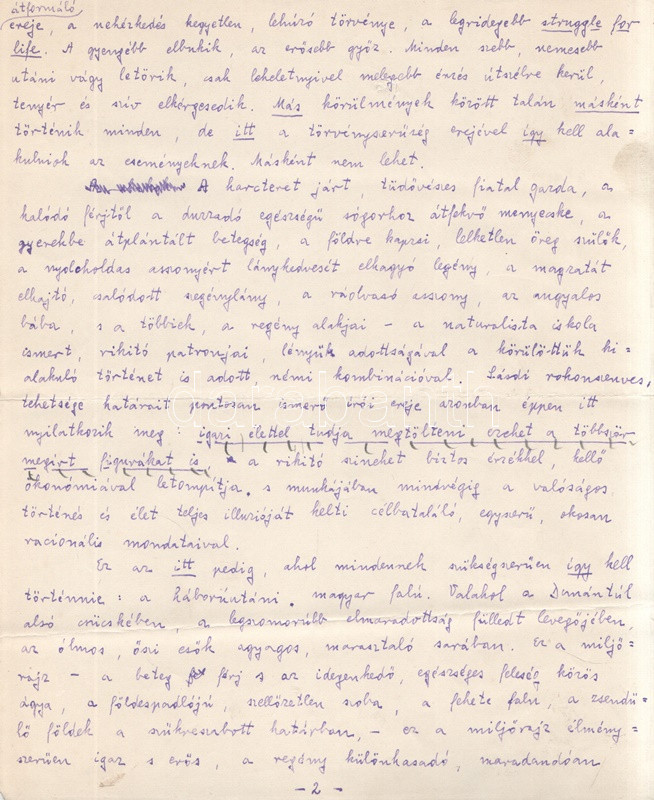 átformáló
ereje, a nehézkedés kegyetlen, lehúzó törvénye, a legridegebb struggle for
life. A gyengébb elbukik, az erősebb győz. Minden szebb, nemesebb
utáni vágy letörik, csak leheletnyivel melegebb érzés útszélre kerül,
tenyér és szív elkérgesedik. Más körülmények között talán másként
történik minden, de itt a törvényszerűség erejével így kell ala=
kulniok az eseményeknek. Másként nem lehet.
A harcteret járt, tüdővészes fiatal gazda, a
haldódó férjtől a duzzadó egészségű sógorhoz átfekvő menyecske, a
gyerekbe átplántált betegség, a földre kapzsi, lelketlen öreg szülők,
a nyolcholdas asszonyért lánykedvesét elhagyó legény, a magzatát
elhajtó, csalódott szegénylány, a ráolvasó asszony, az angyalos
bába, s a többiek, a regény alakjai – a naturalista iskola
ismert, rikító patronjai, lényük adottságával a körülöttük ki=
alakuló történet is adott, némi kombinációval. Sásdi rokonszenves,
tehetsége határait pontosan ismerő írói ereje azonban éppen itt
nyilatkozik meg: igazi élettel tudja megtölteni ezeket a többször
megírt figurákat is, a rikító színeket biztos érzékkel, kellő
ökonómiával letompítja s munkájában mindvégig a valóságos
történés és élet teljes illúzióját kelti célbataláló, egyszerű, okosan
racionális mondataival.
Ez az itt pedig, ahol mindennek szükségszerűen így kell
történnie: a háborúutáni magyar falú. Valahol a Dunántúl
alsó csücskében, a legszomorúbb elmaradottság fülledt levegőjében,
az ólmos, őszi esők agyagos, marasztaló sarában. Ez a miljő=
rajz – a beteg férj s az idegenkedő, egészséges feleség közös
ágya, a földespadlójú, szellőzetlen szoba, a fekete falu, a zsendü=
lő földek a szűkreszabott határban, – ez a miljőrajz élmény=
szerűen igaz s erős, a regény különhasadó, maradandóan
– 2 –
darabanth